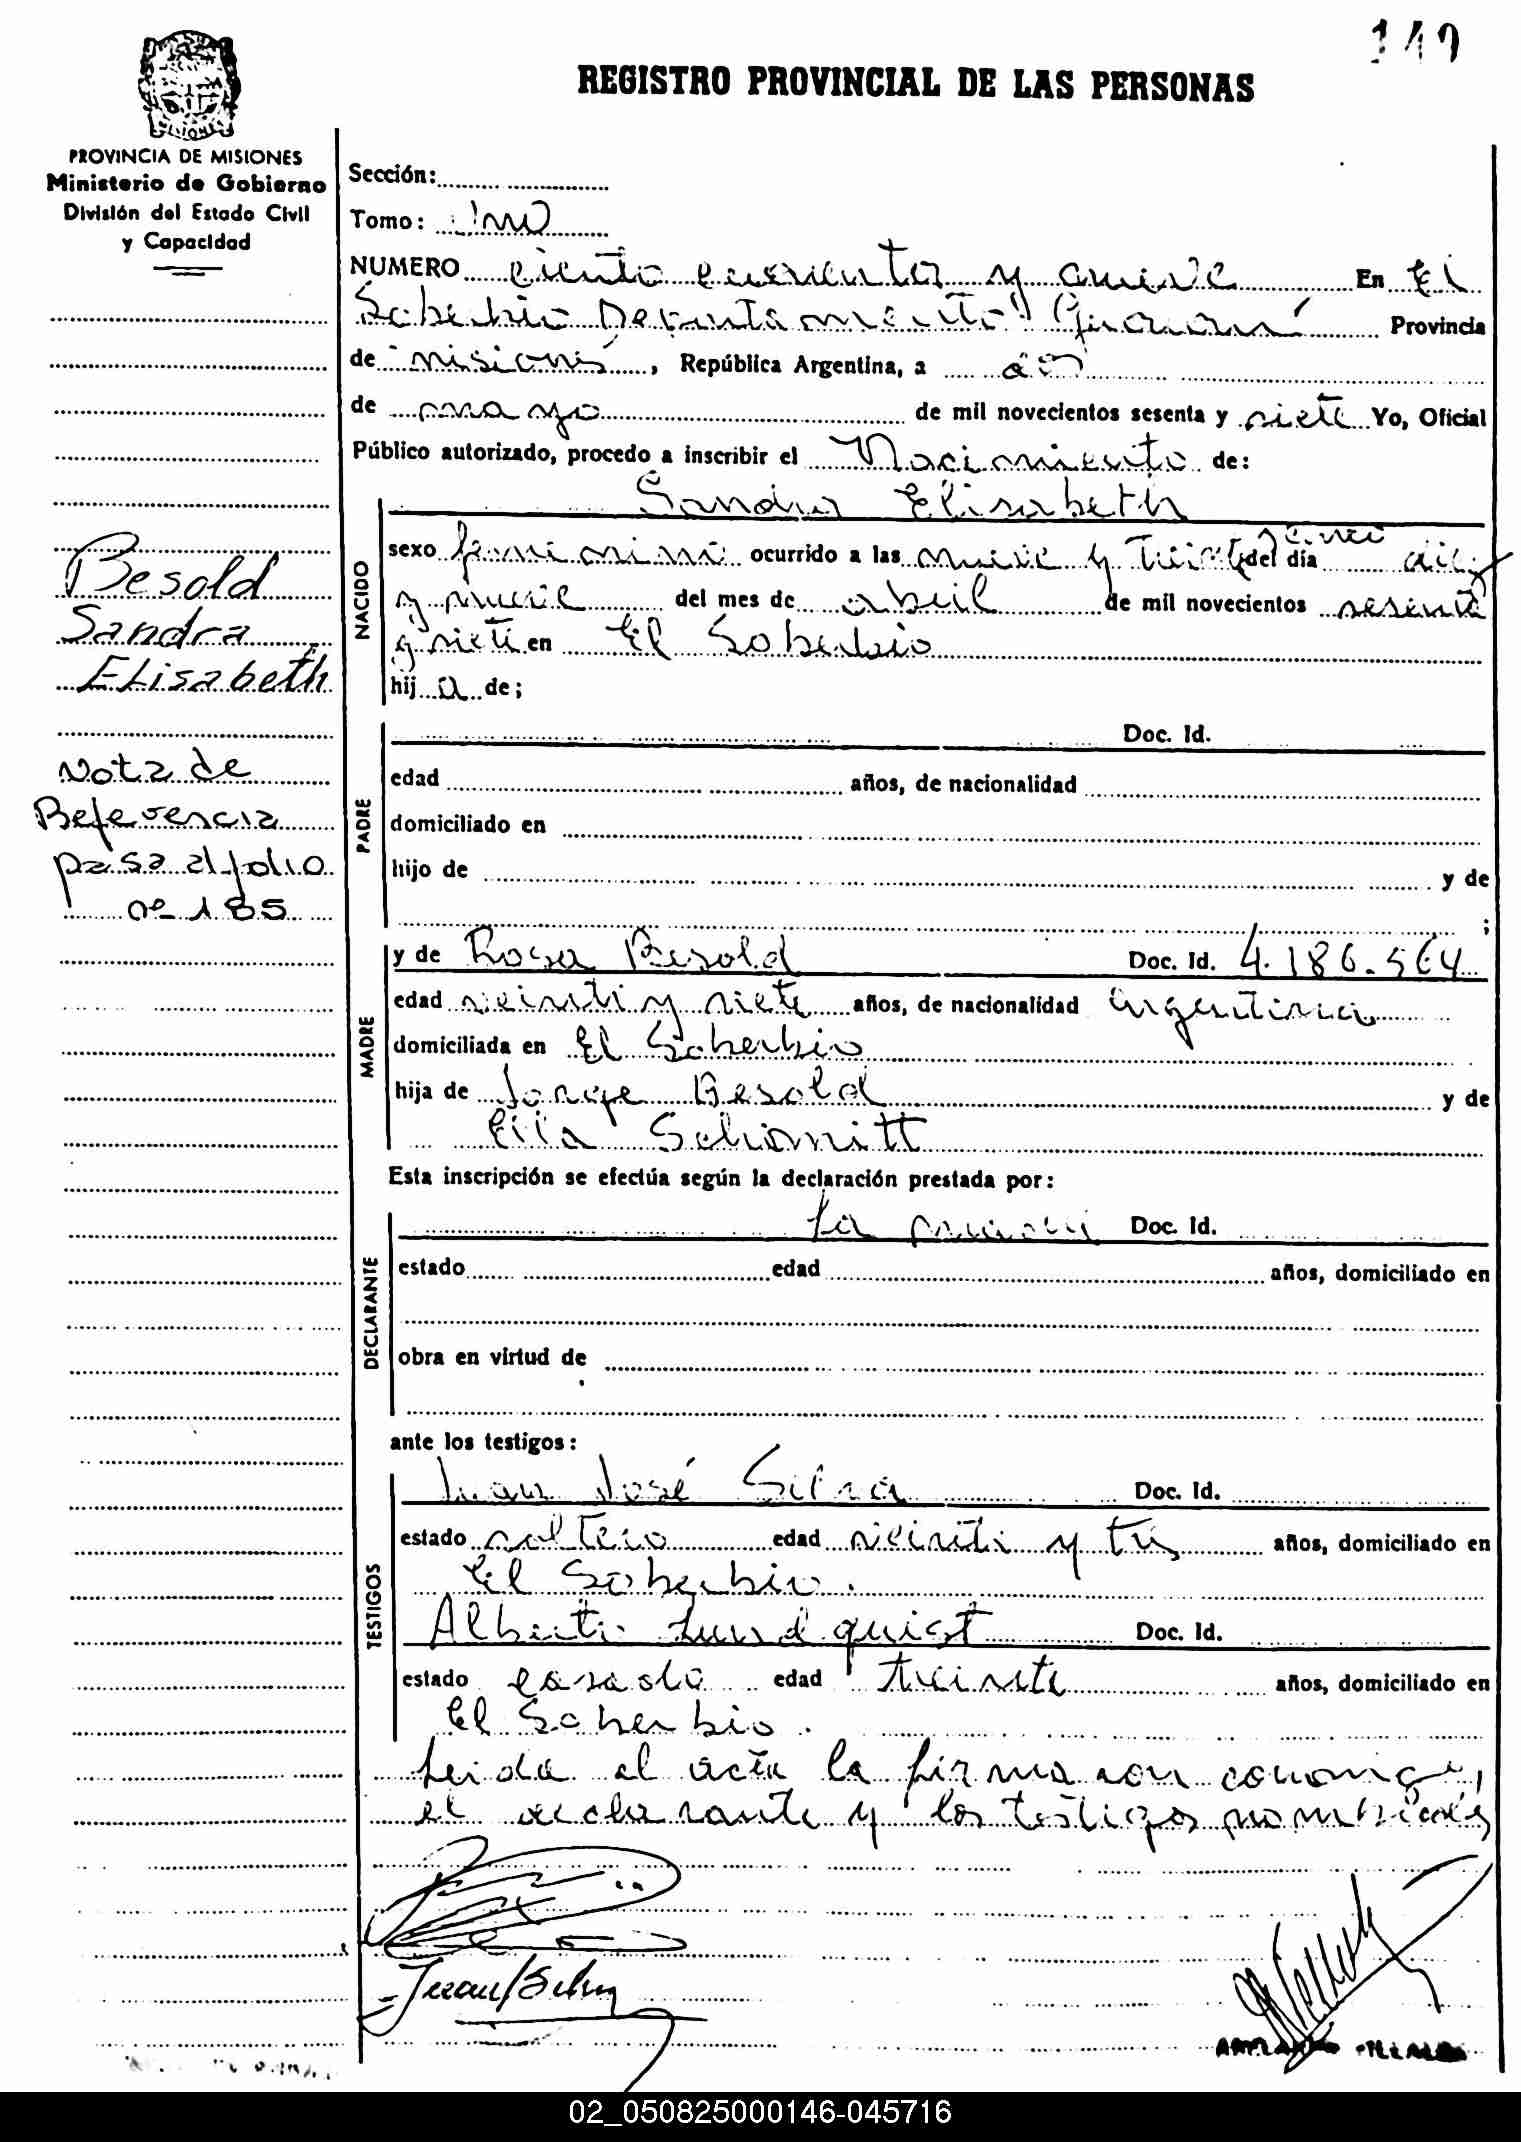 149
REGISTRO PROVINCIAL DE LAS PERSONAS
MISIONES
PROVINCIA DE MISIONES
Ministerio de Gobierno
División del Estado Civil
y Capacidad
Besold
Sandra
Elisabeth
Nota de
Referencia
pasa al folio
nº 185
Sección:
Tomo: Uno
NUMERO ciento cuarenta y nueve En El
Soberbio Departamento Guaraní Provincia
de misiones, República Argentina, a dos
de mayo de mil novecientos sesenta y siete Yo, Oficial
Público autorizado, procedo a inscribir el Nacimiento de:
Sandra Elisabeth
NACIDO
sexo femenino ocurrido a las nueve y treinta cinco del día diez
y nueve del mes de abril de mil novecientos sesenta
y siete en El Soberbio
hij a de;
PADRE
Doc. Id.
edad años, de nacionalidad
domiciliado en
hijo de y de
;
MADRE
y de Rosa Besold Doc. Id. 4.186.564
edad veinti y siete años, de nacionalidad argentina
domiciliada en El Soberbio
hija de Jorge Besold y de
Schmitt
Esta inscripción se efectúa según la declaración prestada por:
DECLARANTE
La Doc. Id.
estado edad años, domiciliado en
obra en virtud de
ante los testigos:
TESTIGOS
Juan José Silva Doc. Id.
estado soltero edad veinti y tres años, domiciliado en
El Soberbio.
Alberto Lundquist Doc. Id.
estado casado edad treinta años, domiciliado en
El Soberbio.
Leida el acta la firman con conmigo,
el declarante y los testigos nombrados
Juan J Silva
02_050825000146-045716